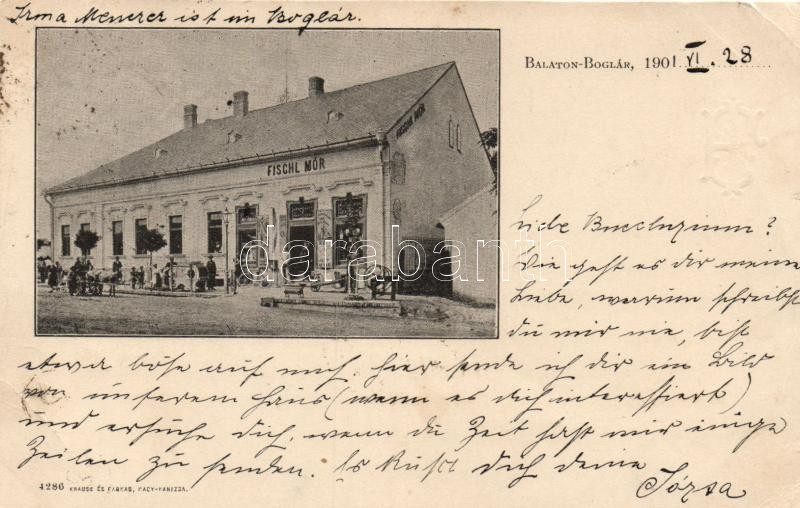 Irma Menczer ist im Boglár.
BALATON-BOGLÁR, 1901 VI. 28
FISCHL MÓR
FISCHL MÓR
darabanth
Liebe
Wie geht es dir meine
Liebe, warum schreibst
du mir nie, bist
etwa böse auf mich. hier sende ich dir ein Bild
von unserem Haus (wenn es dich interessiert)
und ersuche dich, wenn du Zeit hast mir einige
Zeilen zu senden. Es Küsst dich deine
Józsa
4286 KRAUSZ ÉS FARKAS, NAGY-KANIZSA.